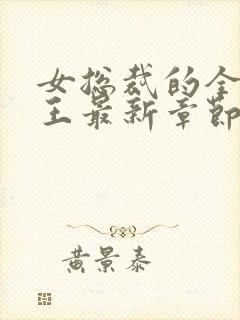 女总裁的全
王最新章节
黄景泰